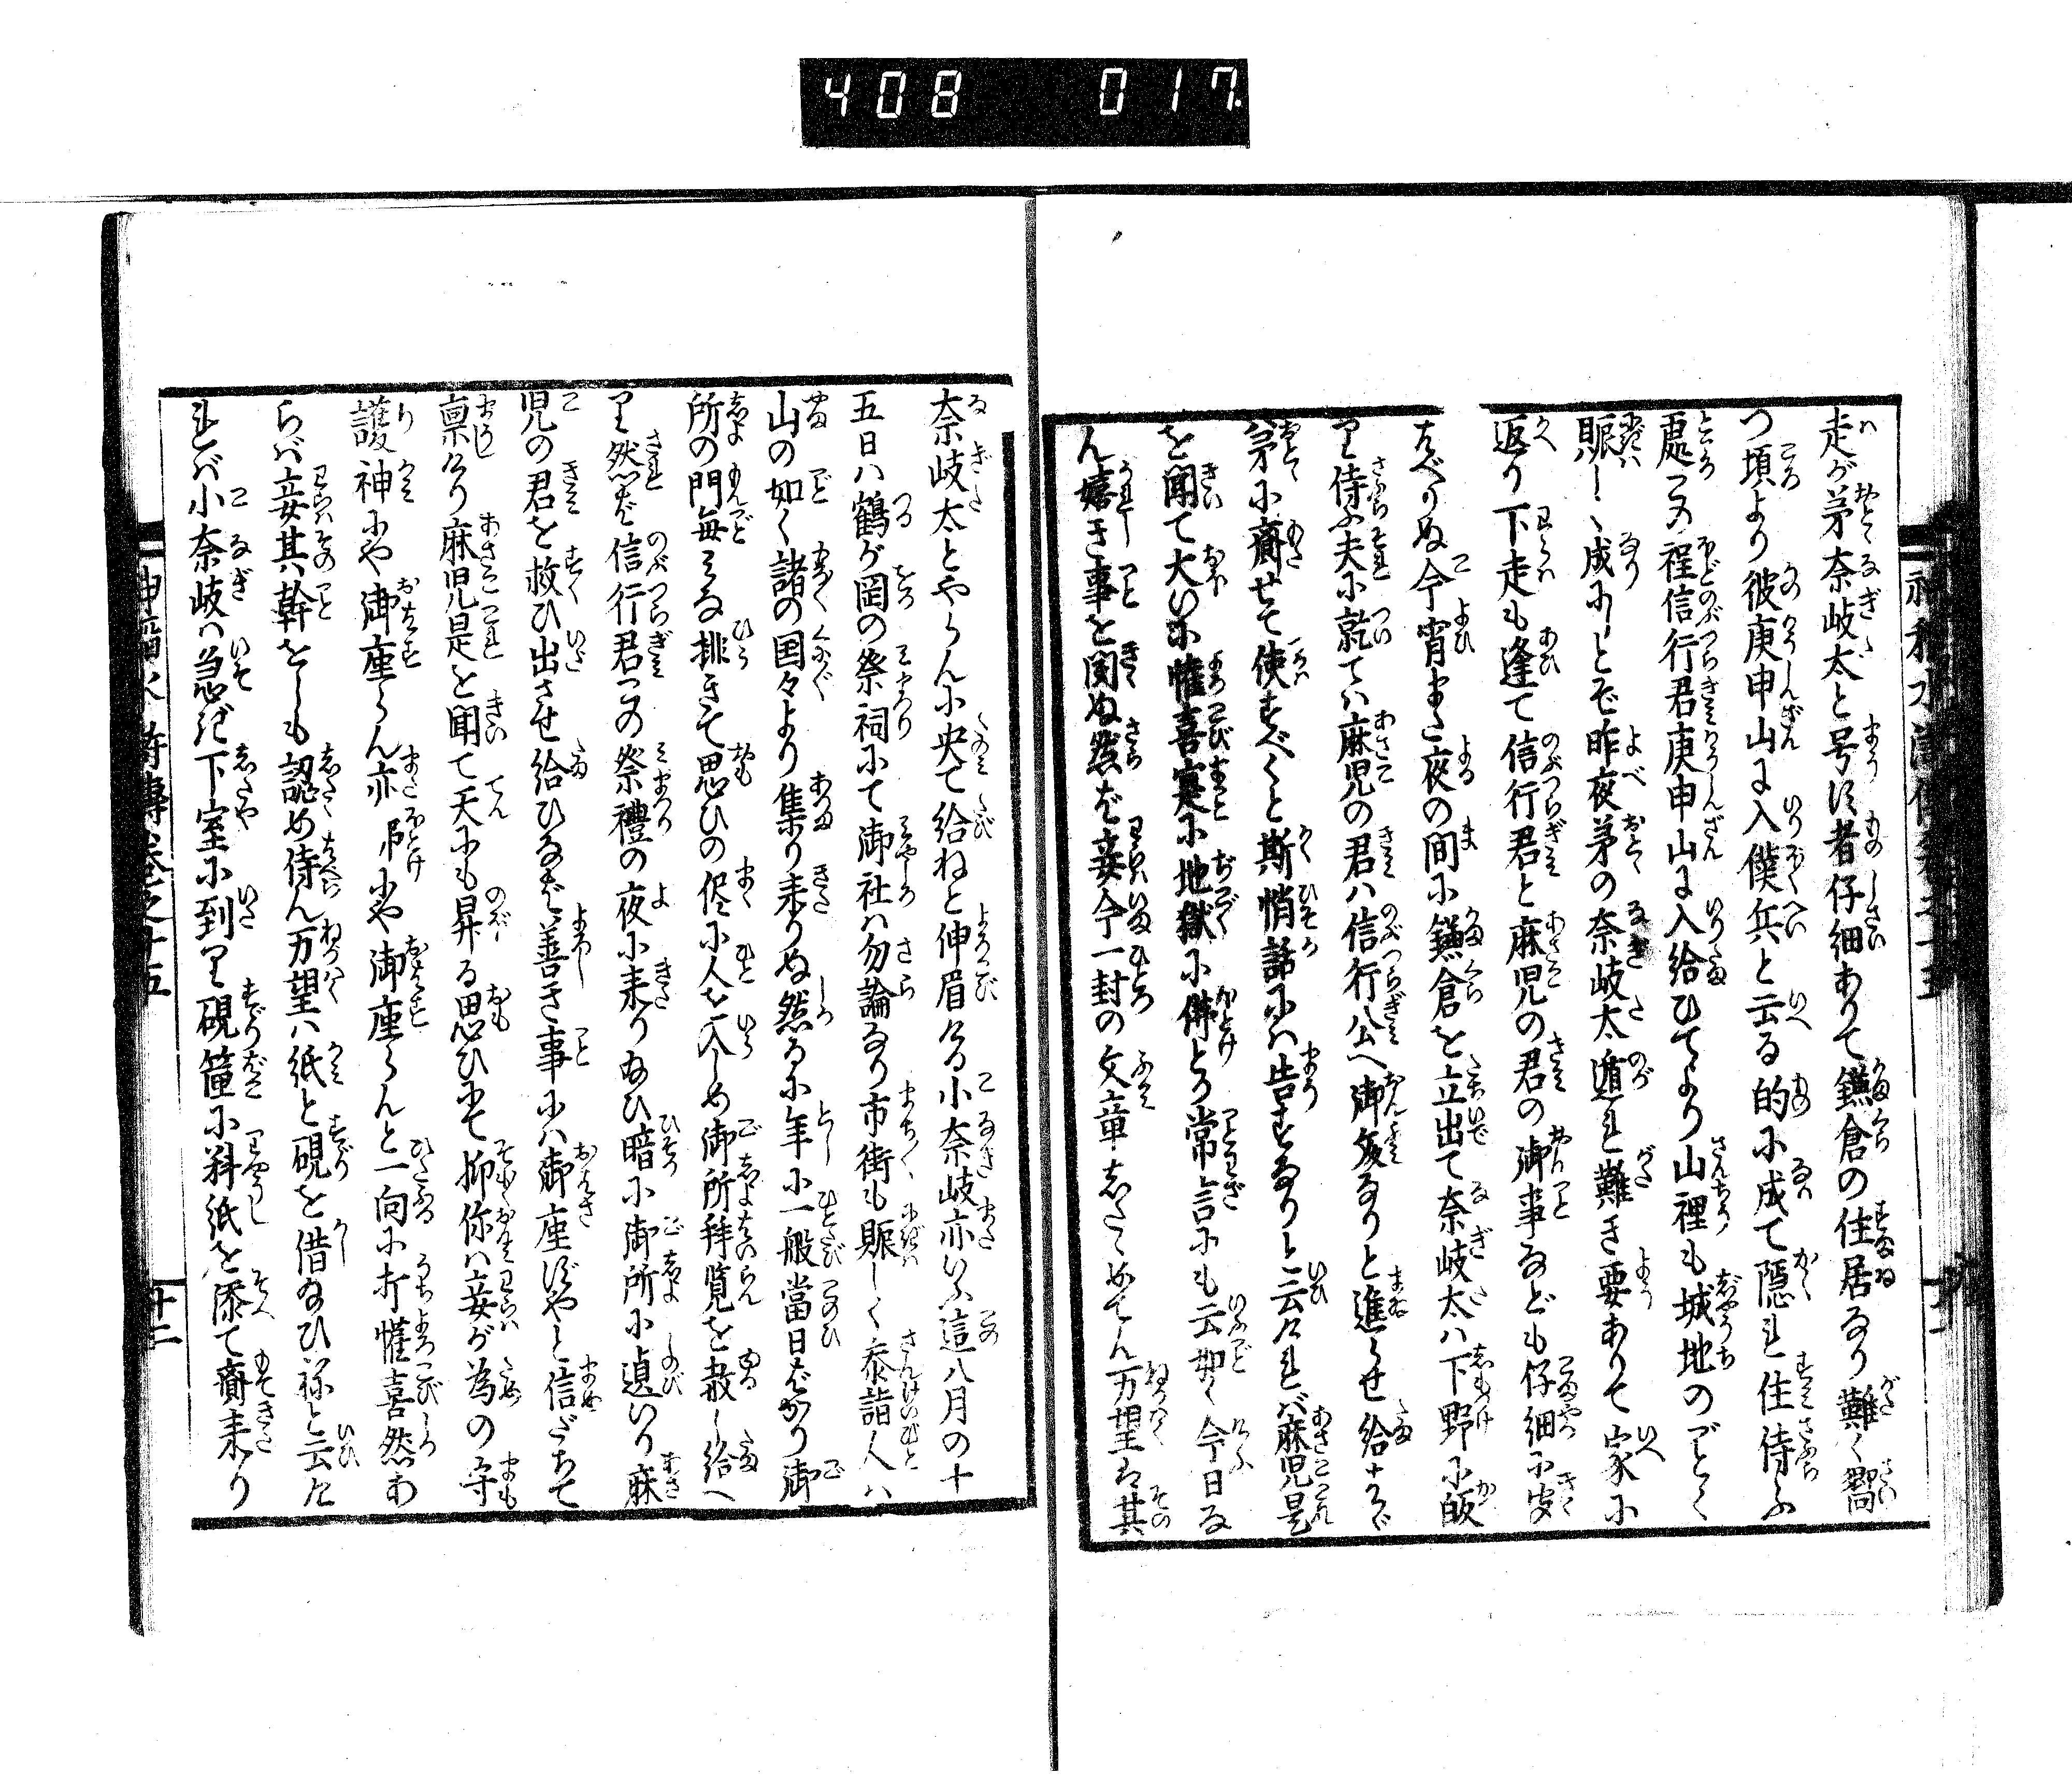 408 017
走が茅奈岐太と号に者仔細ありて鎌倉の住居なり難く嚮
つ頃より彼庚申山に入僕兵と云る的に成て隠れ住侍ふ
處この程信行君庚申山に入給ひてより山裡も城地のごとく
賑しく成にしとぞ昨夜茅の奈岐太遁れ難き要ありて家に
返り下走も逢て信行君と麻児の君の御事なども仔細に安
すべりぬ今宵また夜の間に鎌倉を立出て奈岐太ハ下野に皈
り侍ふ夫に就てハ麻児の君ハ信行公へ御文なりと進らせ給ハゞ
茅に齎せて使すべくと斯悄話にハ告すなりと云々れバ麻児是
を聞て大いに懽喜寔に地獄に佛とか常言にも云如く今日な
ん嬉き事を聞ぬ然ば妾今一封の文章したゝめてん万望ハ其
奈岐太とやらんに央て給ねと伸眉ける小奈岐亦いふ這八月の十
五日ハ鶴が岡の祭祠にて御社ハ勿論なり市街も賑しく参詣人ハ
山の如く諸の国々より集り来りぬ然るに年に一般當日ばかり御
所の門毎みな排きて思ひの侭に人を入しめ御所拜覧を赦し給へ
り然ば信行君この祭禮の夜に来り給ひ暗に御所に遉いり麻
児の君を救ひ出させ給ひなば善き事にハ御座ずやと信だちて
稟けり麻児是を聞て天にも昇る思ひにて抑你ハ妾が為の守
護神にや御座らん亦佛にや御座らんと一向に打懽喜然あ
らバ妾其幹をしも認め侍ん万望ハ紙と硯を借給ひねと云た
れバ小奈岐ハ急ぎ下室に到り硯箱に料紙を添て齎来り
卷之十五
十二